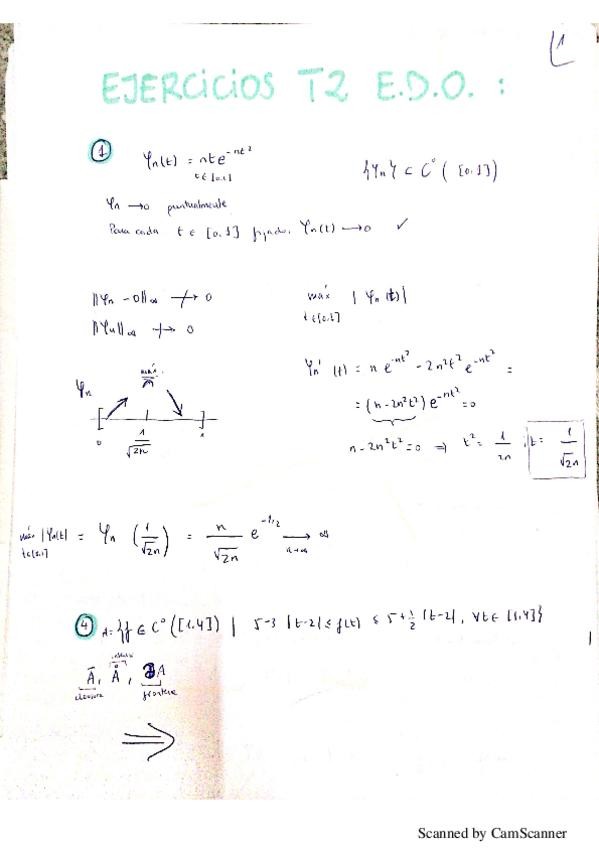 1
EJERCICIOS T2 E.D.O. :
① φn(t) = nte^{-nt²}
t∈[0,1]
{φn} ⊂ C⁰([0,1])
φn → 0 puntualmente
Para cada t ∈ [0,1] fijado, φn(t) → 0 ✓
||φn - 0||∞ ↛ 0
||φn||∞ ↛ 0
máx |φn(t)|
t∈[0,1]
φn'(t) = n e^{-nt²} - 2n²t² e^{-nt²} =
= (n - 2n²t²) e^{-nt²} = 0
n - 2n²t² = 0 ⇒ t² = 1/2n, t = 1/√2n
φn
máx
0 1/√2n 1
máx |φn(t)| = φn (1/√2n) = n/√2n e^{-1/2} → ∞
t∈[0,1] n→∞
④ A = {f ∈ C⁰([1,4]) | 5-3|t-2| ≤ f(t) ≤ 5+½|t-2|, ∀t ∈ [1,4]}
Ā, Å, ∂A
clausura
frontera
⇒
Scanned by CamScanner